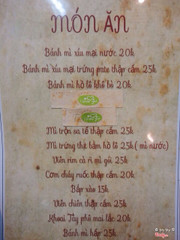 MÓN ĂN
Bánh mì xíu mại nước 20k
Bánh mì xíu mại trứng pate thập cẩm 25k
Bánh mì bò lá khô bò 20k
Mì trộn sa tế thập cẩm 25k
Mì trứng thịt bằm bò lá 25k (mì nước)
Viên rim cà ri mì gói 25k
Cơm cháy nước thập cẩm 20k
Bắp xào 15k
Viên chiên thập cẩm 25k
Khoai tây phô mai lắc 20k
Bánh mì hấp 25k